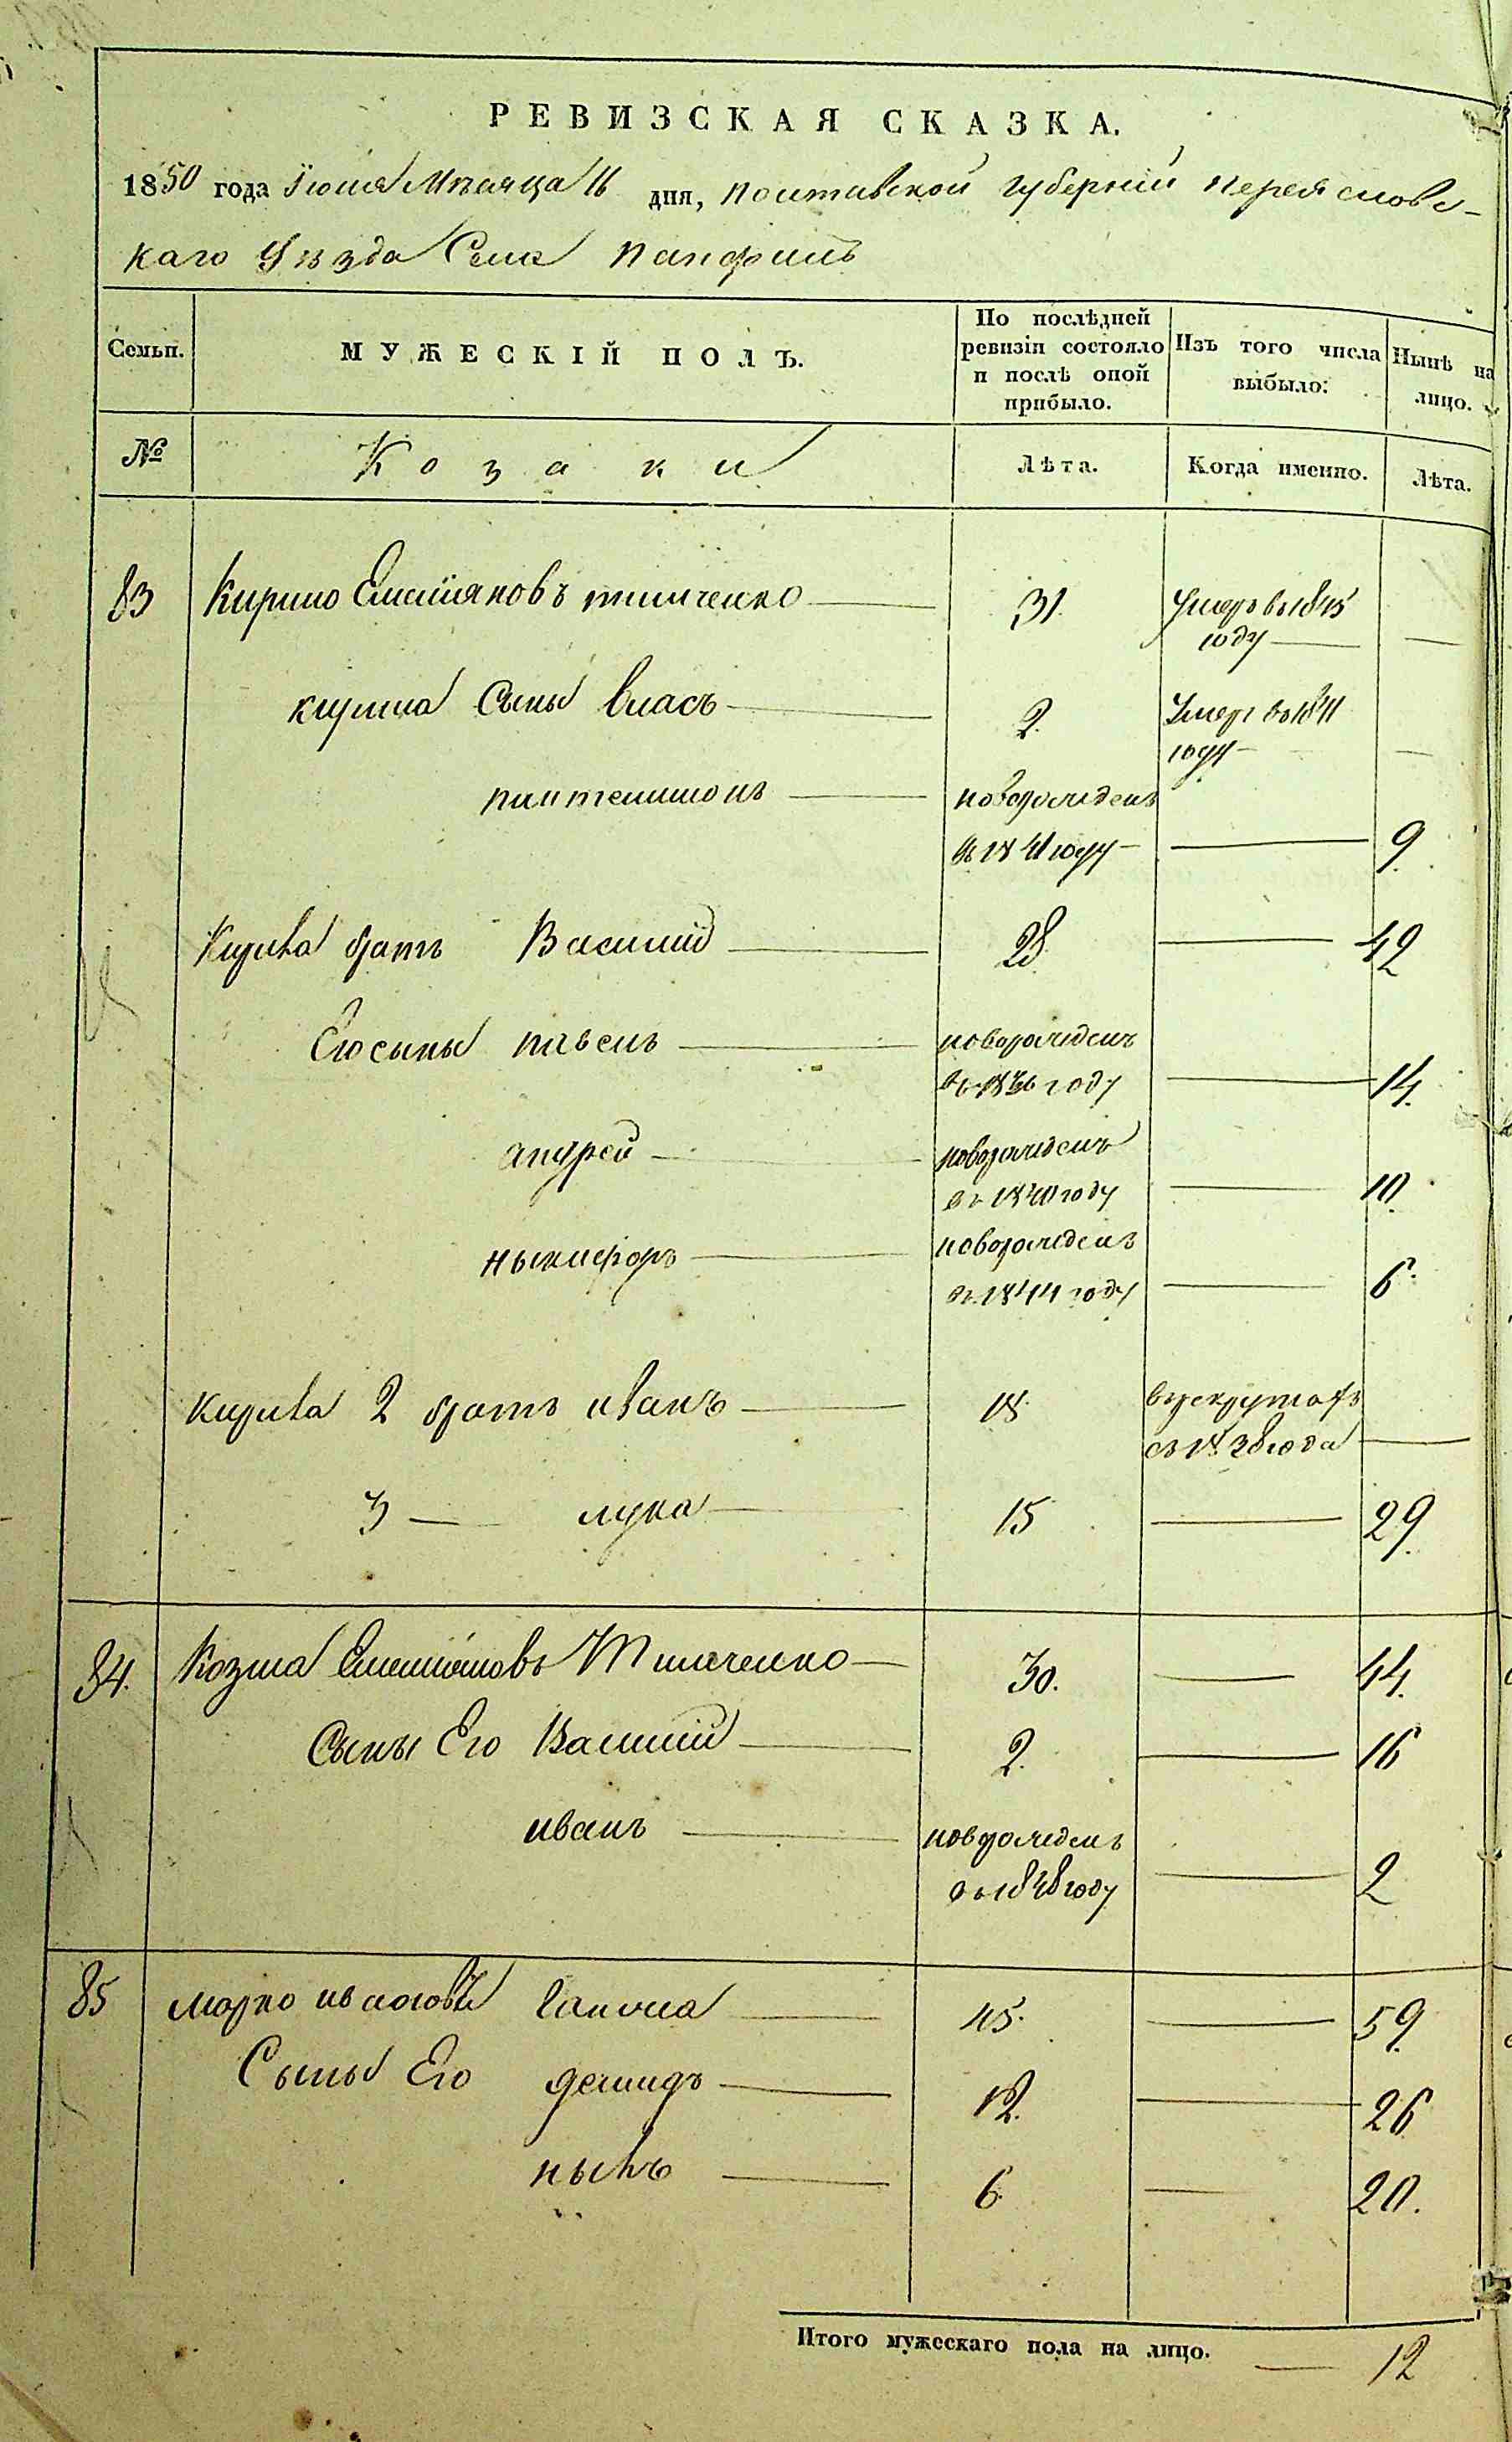 РЕВИЗСКАЯ СКАЗКА.
1850 года Іюня Мѣсяца 16 дня, полтавской губерніи переяславс-
каго Уѣзда Села панфилъ
Семьи. МУЖЕСКІЙ ПОЛЪ. По послѣдней ревизіи состояло и послѣ оной прибыло. Изъ того числа выбыло: Нынѣ на лицо.
№ Козаки Лѣта. Когда именно. Лѣта.
83 Кирило Емелiяновъ тимченко — 31. Умеръ въ 1845
году — —
кирила Сыны власъ — 2. Умеръ въ 1841
году — —
пантелимонъ — новорожденъ
въ 1841 году — — 9.
Кирила братъ Василій — 28. — 42
Его сыны павелъ — новорожденъ
въ 1836 году — 14.
андрей — новорожденъ
въ 1840 году — 10.
ныкифоръ — новорожденъ
въ 1844 году — 6.
кирила 2 братъ иванъ — 18. в рекрутахъ
съ 1838 года —
3 — лука — 15 — 29.
84. Козма Емелiяновъ Тимченко — 30. — 44.
Сыны Его Василій — 2. — 16
иванъ — новорожденъ
въ 1848 году — 2
85 марко ивановъ — 45. — 59.
Сыны Его демидъ — 12. — 26
— 6. — 20.
Итого мужескаго пола на лицо. — 12